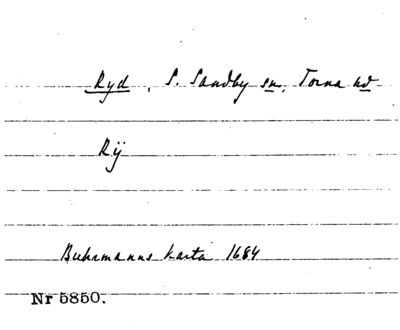 Ryd, S. Sandby sn, Torna hd
Rÿ
Buhrmanns karta 1684
Nr 5850.